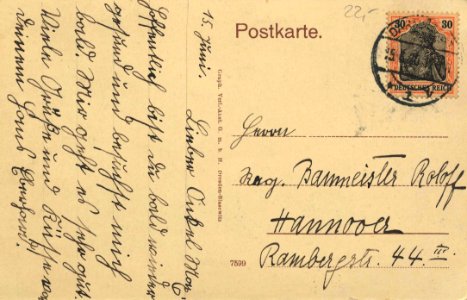 22,-
Postkarte.
30 30
DEUTSCHES REICH
15. Juni.
Lieber Onkel Max,
Hoffentlich bist du bald wieder
gesund und besuchst mich
bald. Mir geht es sehr gut.
Viele Grüße und Küsse von
deinem Hans
Graph. Verl.-Anst. G. m. b. H., Dresden-Blasewitz
7599
Herrn
Baumeister Roloff
Hannover
Rambergstr. 44 III.